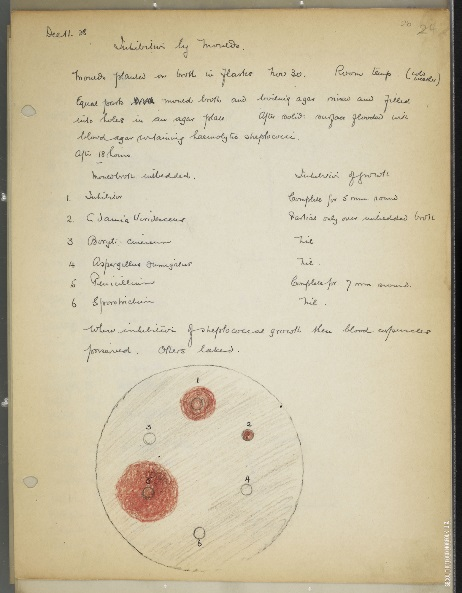 Dec 11. 28
24
Inhibition by moulds.
Moulds planted on broth in flasks Nov 30. Room temp (cold weather)
Equal parts mould broth and boiling agar mixed and filled
into holes in an agar plate After solid. surface flooded with
blood agar containing haemolytic streptococci.
After 18 hours
Mould broth embedded. Inhibition of growth
1 Inhibitor Complete for 5 mm round
2 Partial only over embedded broth
3 Botrytis cinerea Nil
4 Aspergillus fumigatus Nil.
5 Penicillium Complete for 7 mm around.
6 Sporotrichum Nil.
Where inhibition of streptococcal growth then blood corpuscles
preserved. Others laked.
1
3
2
5
4
6